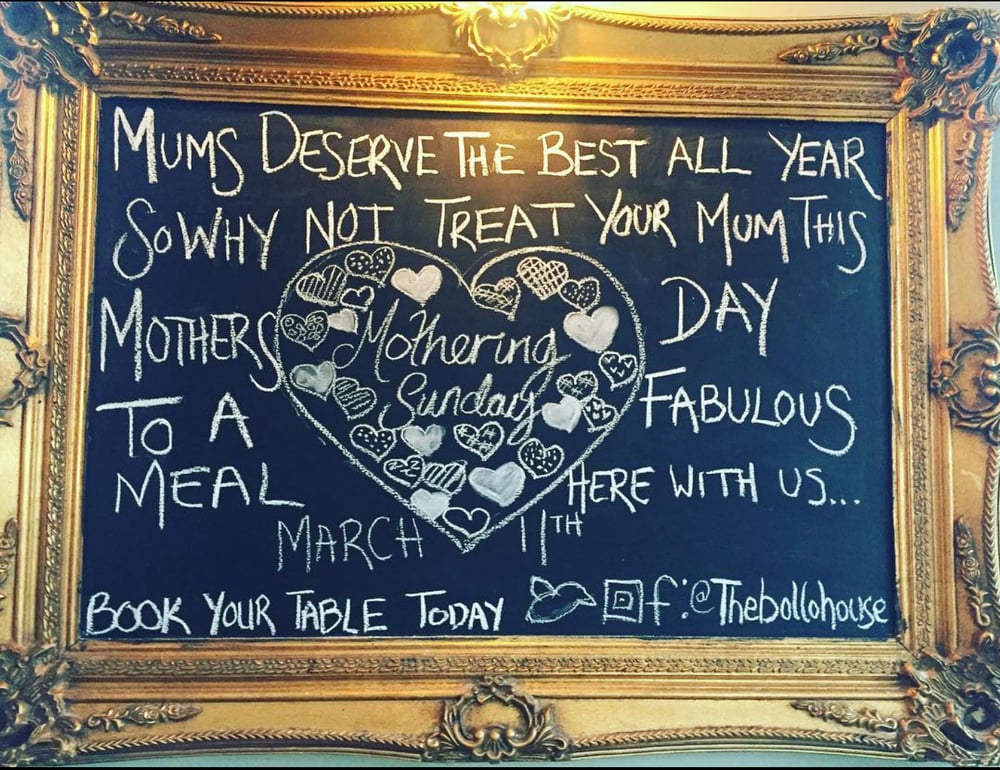 MUMS DESERVE THE BEST ALL YEAR
SO WHY NOT TREAT YOUR MUM THIS
MOTHERS DAY
Mothering
Sunday
TO A FABULOUS
MEAL HERE WITH US...
MARCH 11TH
BOOK YOUR TABLE TODAY f:@Thebollohouse